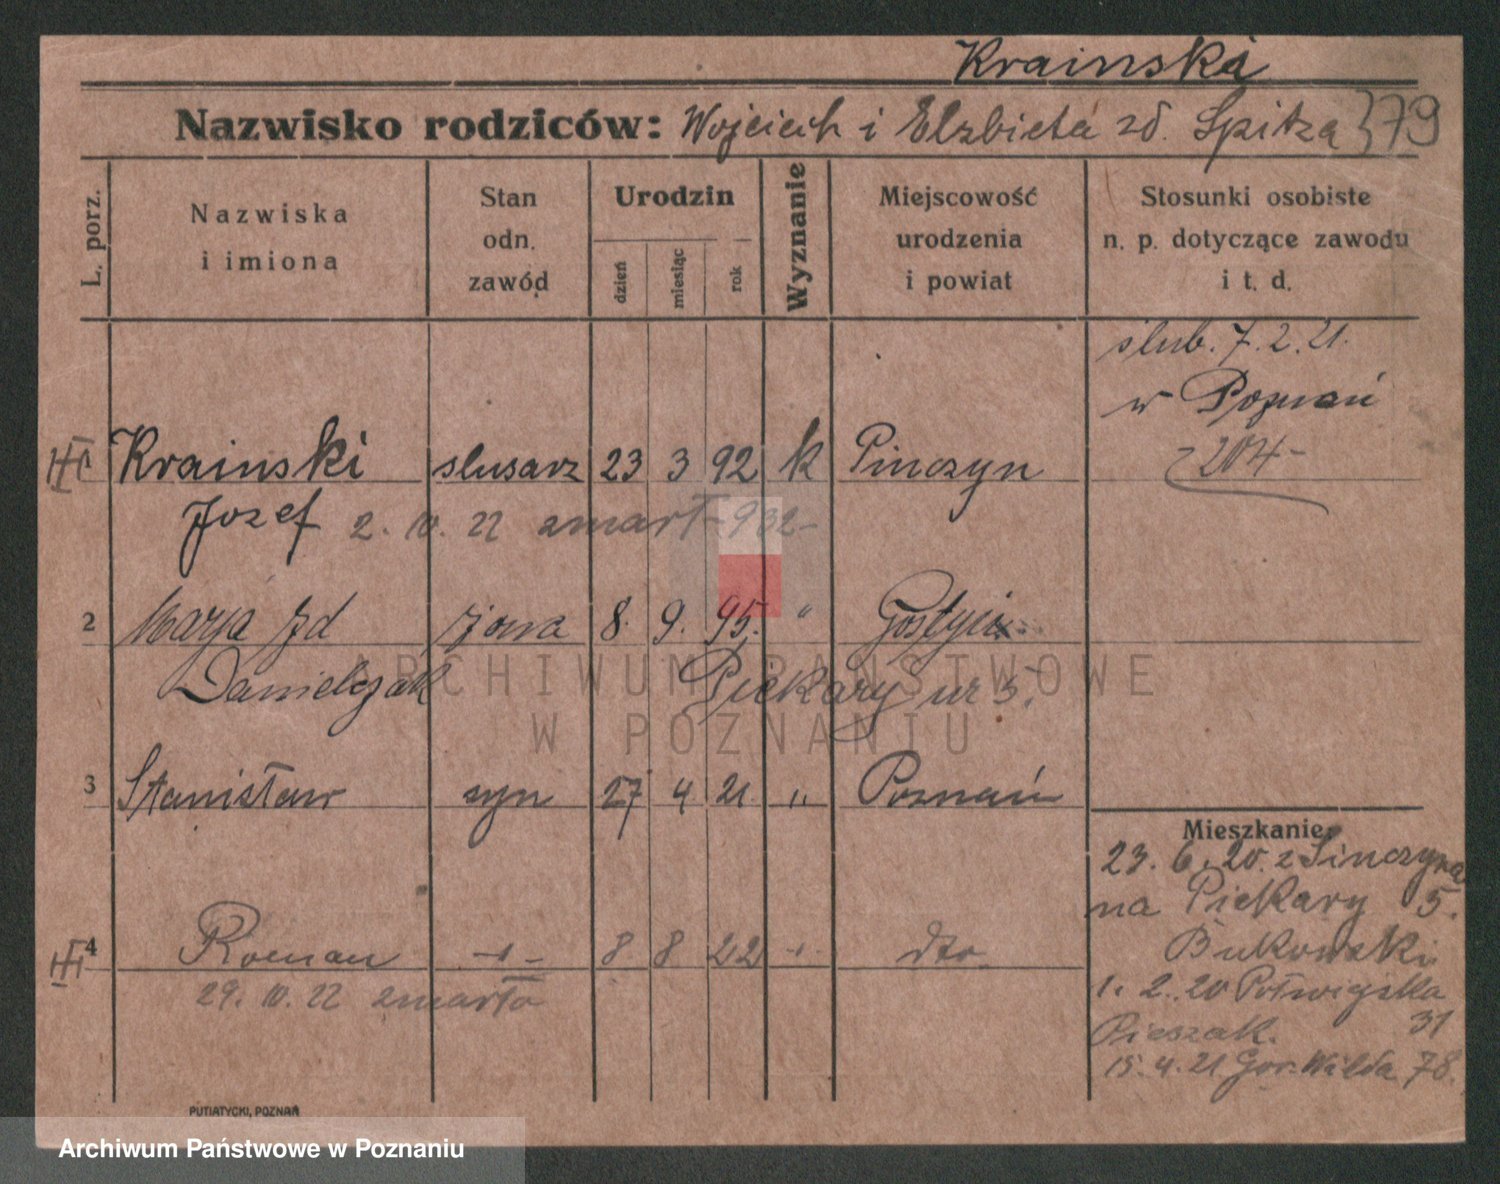 Krainski
Nazwisko rodziców: Wojciech i Elzbieta zd. Spitza 379
L. porz.
Nazwiska i imiona
Stan odn. zawód
Urodzin
dzień miesiąc rok
Wyznanie
Miejscowość urodzenia i powiat
Stosunki osobiste n. p. dotyczące zawodu i t. d.
slub. 7.2.21.
w Poznań
204-
1 Krainski slusarz 23 3 92 k Pinczyn
Jozef 2. 10. 22 zmarł 932-
2 Marja Jd żona 8. 9. 95. "
Danielczak Piekary nr 5.
3 Stanisław syn 27 4 21 " Poznań
4 Roman -"- 8 8 22 -"- dto
29. 10. 22 zmarło
Mieszkanie:
23. 6. 20. z Pinczyna
na Piekary 5.
Bukowski
1. 2. 20
Pieszak. 31
15. 4. 21 Gor. Wilda 78.
PUTIATYCKI, POZNAŃ
ARCHIWUM PAŃSTWOWE
W POZNANIU
Archiwum Państwowe w Poznaniu